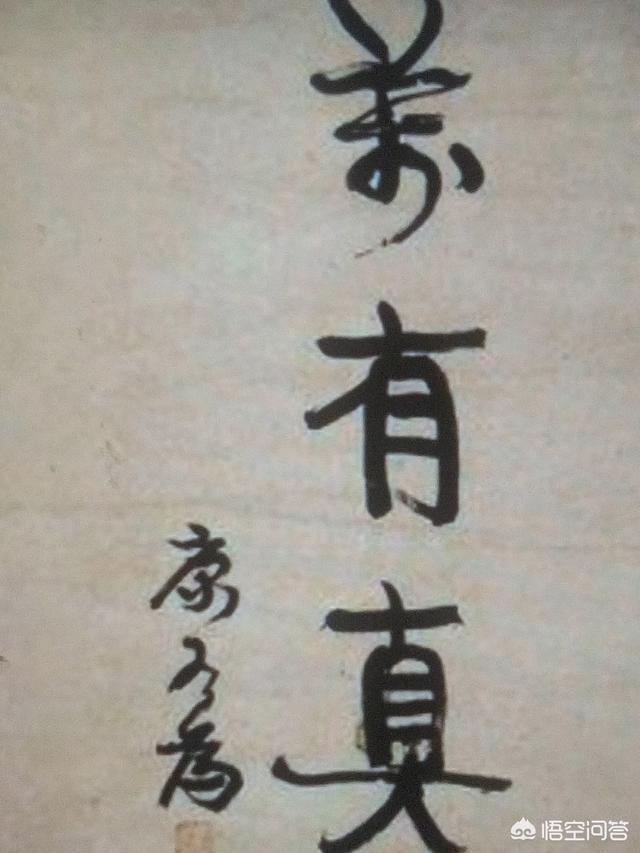 有真
康有為
悟空问答